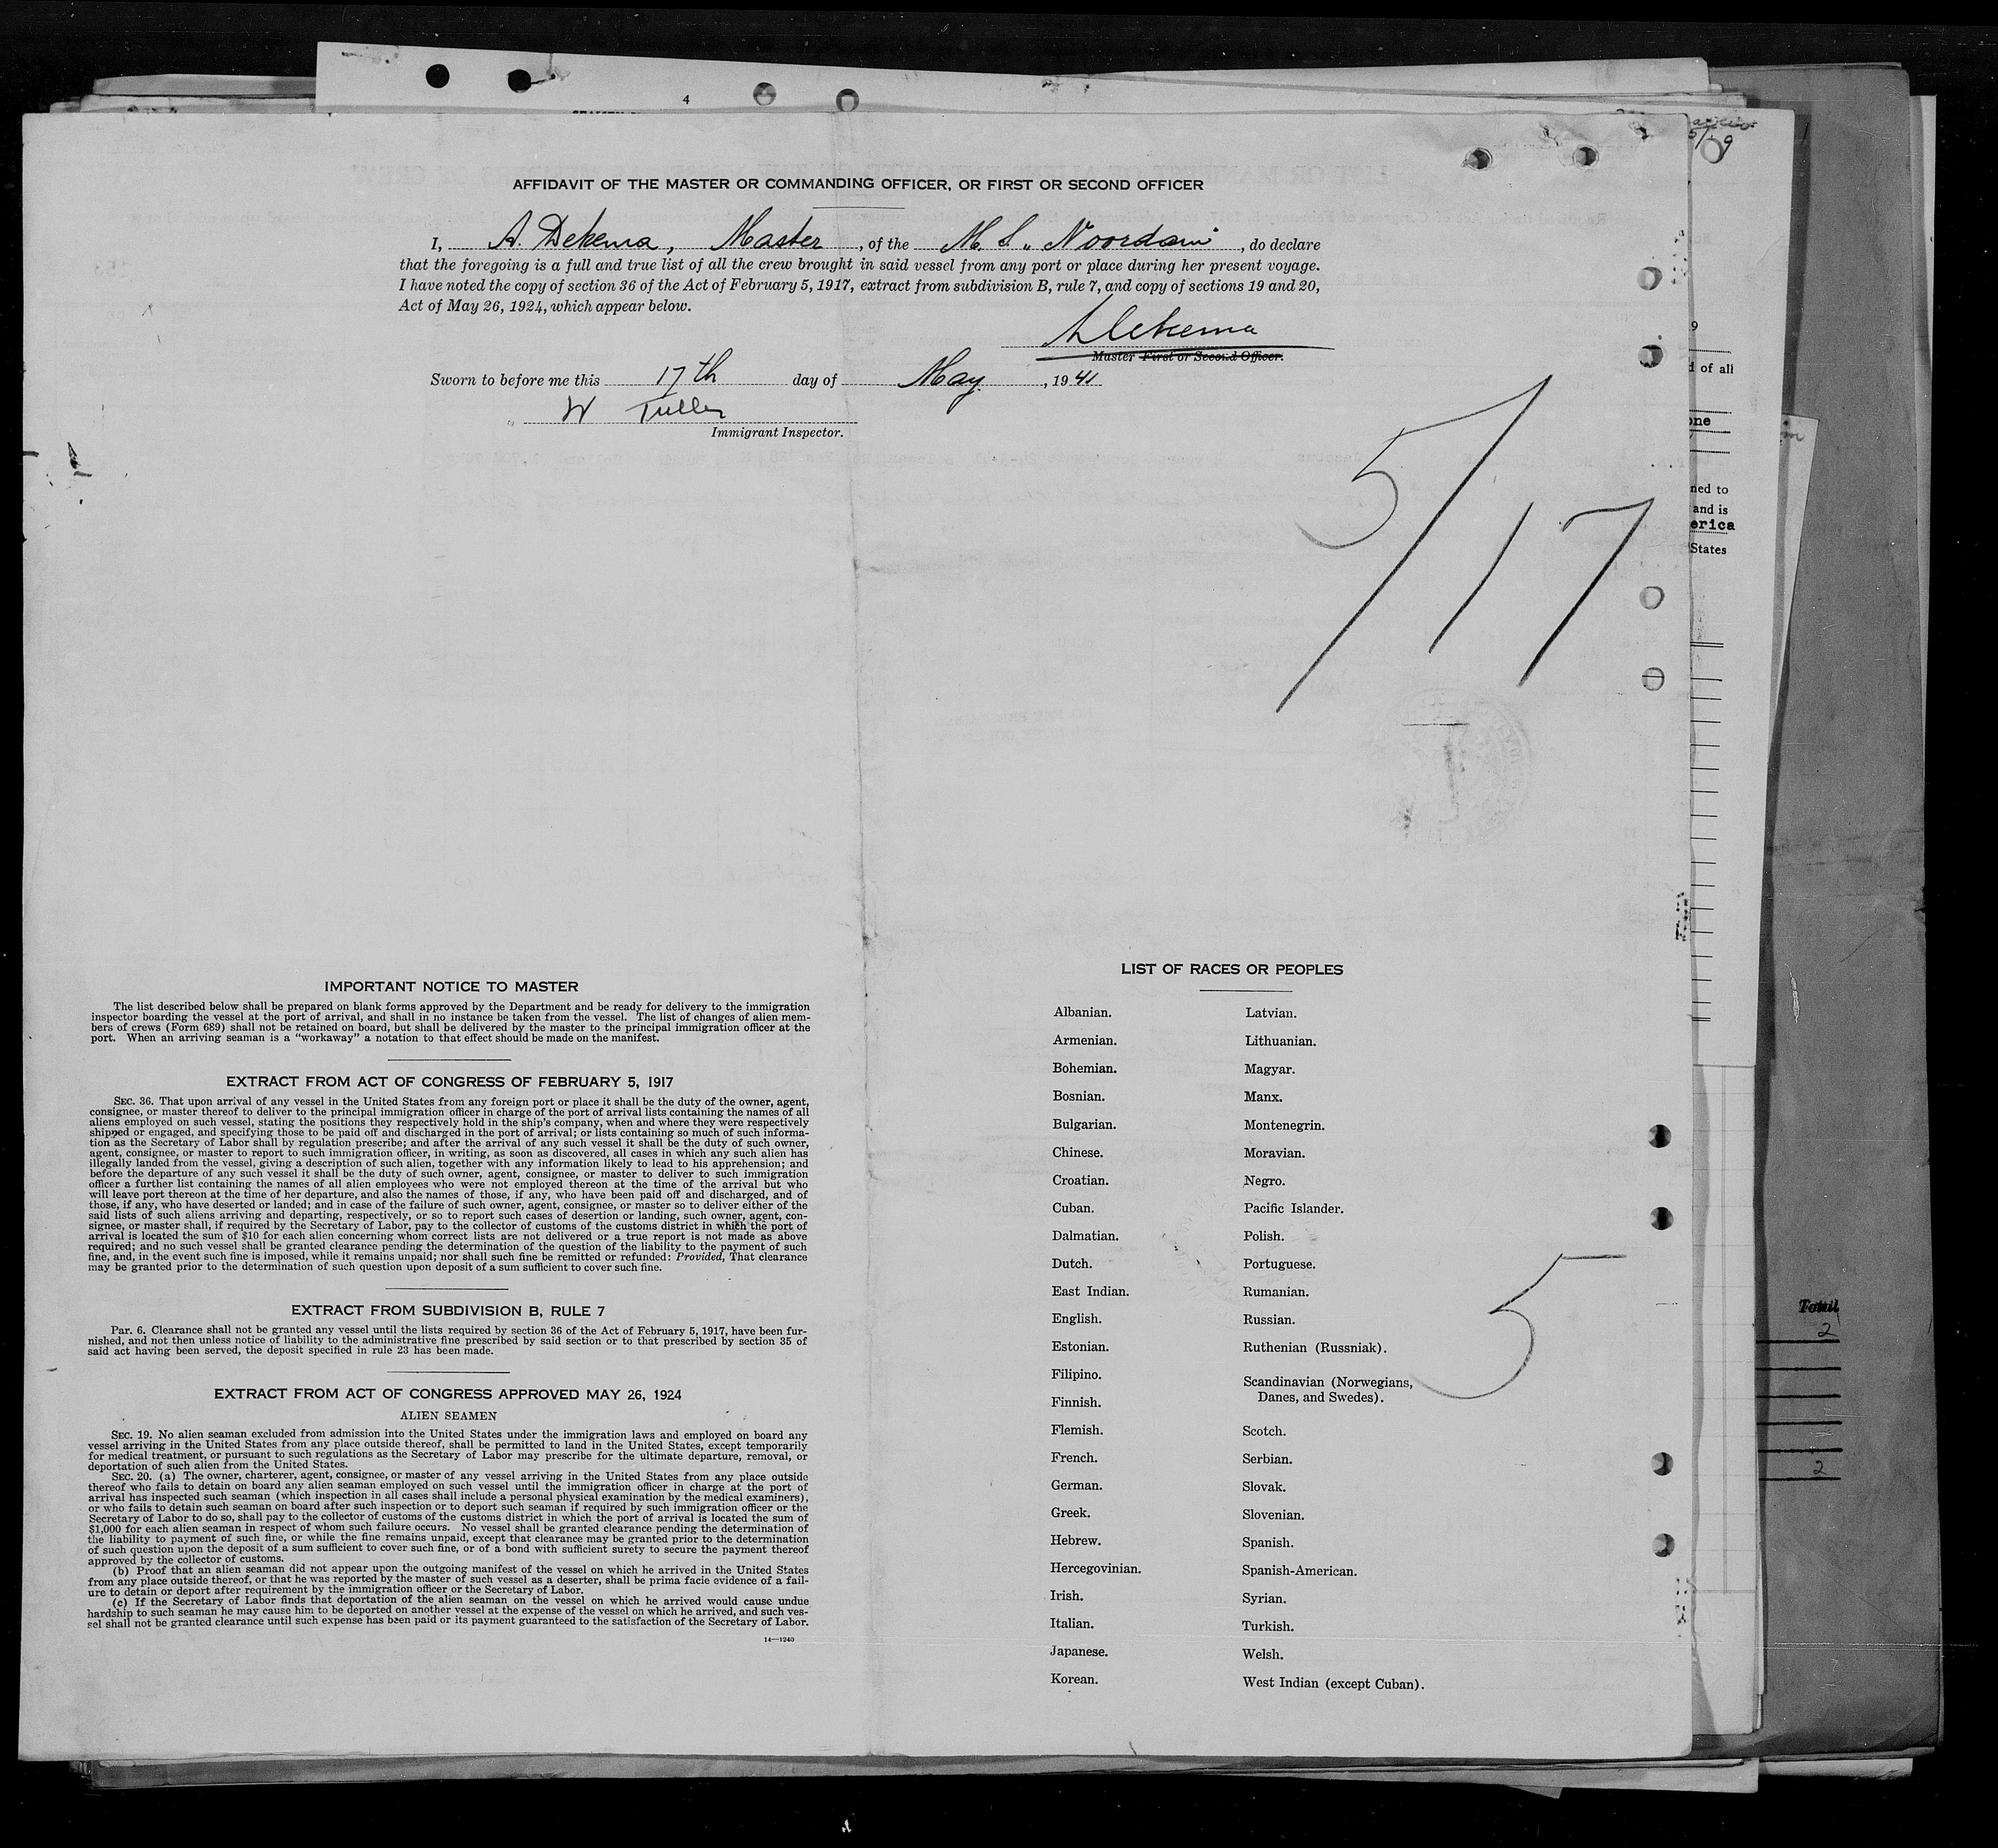 4
AFFIDAVIT OF THE MASTER OR COMMANDING OFFICER, OR FIRST OR SECOND OFFICER
I, A. Dekema, Master, of the M. S. „ Noordam", do declare
that the foregoing is a full and true list of all the crew brought in said vessel from any port or place during her present voyage.
I have noted the copy of section 36 of the Act of February 5, 1917, extract from subdivision B, rule 7, and copy of sections 19 and 20,
Act of May 26, 1924, which appear below.
ADekema
Master First or Second Officer.
Sworn to before me this 17th day of May, 1941
W Tuller
Immigrant Inspector.
5/17
IMPORTANT NOTICE TO MASTER
The list described below shall be prepared on blank forms approved by the Department and be ready for delivery to the immigration
inspector boarding the vessel at the port of arrival, and shall in no instance be taken from the vessel. The list of changes of alien mem-
bers of crews (Form 689) shall not be retained on board, but shall be delivered by the master to the principal immigration officer at the
port. When an arriving seaman is a “workaway” a notation to that effect should be made on the manifest.
EXTRACT FROM ACT OF CONGRESS OF FEBRUARY 5, 1917
SEC. 36. That upon arrival of any vessel in the United States from any foreign port or place it shall be the duty of the owner, agent,
consignee, or master thereof to deliver to the principal immigration officer in charge of the port of arrival lists containing the names of all
aliens employed on such vessel, stating the positions they respectively hold in the ship's company, when and where they were respectively
shipped or engaged, and specifying those to be paid off and discharged in the port of arrival; or lists containing so much of such informa-
tion as the Secretary of Labor shall by regulation prescribe; and after the arrival of any such vessel it shall be the duty of such owner,
agent, consignee, or master to report to such immigration officer, in writing, as soon as discovered, all cases in which any such alien has
illegally landed from the vessel, giving a description of such alien, together with any information likely to lead to his apprehension; and
before the departure of any such vessel it shall be the duty of such owner, agent, consignee, or master to deliver to such immigration
officer a further list containing the names of all alien employees who were not employed thereon at the time of the arrival but who
will leave port thereon at the time of her departure, and also the names of those, if any, who have been paid off and discharged, and of
those, if any, who have deserted or landed; and in case of the failure of such owner, agent, consignee, or master so to deliver either of the
said lists of such aliens arriving and departing, respectively, or so to report such cases of desertion or landing, such owner, agent, con-
signee, or master shall, if required by the Secretary of Labor, pay to the collector of customs of the customs district in which the port of
arrival is located the sum of $10 for each alien concerning whom correct lists are not delivered or a true report is not made as above
required; and no such vessel shall be granted clearance pending the determination of the question of the liability to the payment of such
fine, and, in the event such fine is imposed, while it remains unpaid; nor shall such fine be remitted or refunded: Provided, That clearance
may be granted prior to the determination of such question upon deposit of a sum sufficient to cover such fine.
EXTRACT FROM SUBDIVISION B, RULE 7
Par. 6. Clearance shall not be granted any vessel until the lists required by section 36 of the Act of February 5, 1917, have been fur-
nished, and not then unless notice of liability to the administrative fine prescribed by said section or to that prescribed by section 35 of
said act having been served, the deposit specified in rule 23 has been made.
EXTRACT FROM ACT OF CONGRESS APPROVED MAY 26, 1924
ALIEN SEAMEN
SEC. 19. No alien seaman excluded from admission into the United States under the immigration laws and employed on board any
vessel arriving in the United States from any place outside thereof, shall be permitted to land in the United States, except temporarily
for medical treatment, or pursuant to such regulations as the Secretary of Labor may prescribe for the ultimate departure, removal, or
deportation of such alien from the United States.
SEC. 20. (a) The owner, charterer, agent, consignee, or master of any vessel arriving in the United States from any place outside
thereof who fails to detain on board any alien seaman employed on such vessel until the immigration officer in charge at the port of
arrival has inspected such seaman (which inspection in all cases shall include a personal physical examination by the medical examiners),
or who fails to detain such seaman on board after such inspection or to deport such seaman if required by such immigration officer or the
Secretary of Labor to do so, shall pay to the collector of customs of the customs district in which the port of arrival is located the sum of
$1,000 for each alien seaman in respect of whom such failure occurs. No vessel shall be granted clearance pending the determination of
the liability to payment of such fine, or while the fine remains unpaid, except that clearance may be granted prior to the determination
of such question upon the deposit of a sum sufficient to cover such fine, or of a bond with sufficient surety to secure the payment thereof
approved by the collector of customs.
(b) Proof that an alien seaman did not appear upon the outgoing manifest of the vessel on which he arrived in the United States
from any place outside thereof, or that he was reported by the master of such vessel as a deserter, shall be prima facie evidence of a fail-
ure to detain or deport after requirement by the immigration officer or the Secretary of Labor.
(c) If the Secretary of Labor finds that deportation of the alien seaman on the vessel on which he arrived would cause undue
hardship to such seaman he may cause him to be deported on another vessel at the expense of the vessel on which he arrived, and such ves-
sel shall not be granted clearance until such expense has been paid or its payment guaranteed to the satisfaction of the Secretary of Labor.
14—1240
LIST OF RACES OR PEOPLES
Albanian.
Armenian.
Bohemian.
Bosnian.
Bulgarian.
Chinese.
Croatian.
Cuban.
Dalmatian.
Dutch.
East Indian.
English.
Estonian.
Filipino.
Finnish.
Flemish.
French.
German.
Greek.
Hebrew.
Hercegovinian.
Irish.
Italian.
Japanese.
Korean.
Latvian.
Lithuanian.
Magyar.
Manx.
Montenegrin.
Moravian.
Negro.
Pacific Islander.
Polish.
Portuguese.
Rumanian.
Russian.
Ruthenian (Russniak).
Scandinavian (Norwegians,
Danes, and Swedes).
Scotch.
Serbian.
Slovak.
Slovenian.
Spanish.
Spanish-American.
Syrian.
Turkish.
Welsh.
West Indian (except Cuban).
5
9
d of all
one
ned to
and is
erica
States
Total
2
2